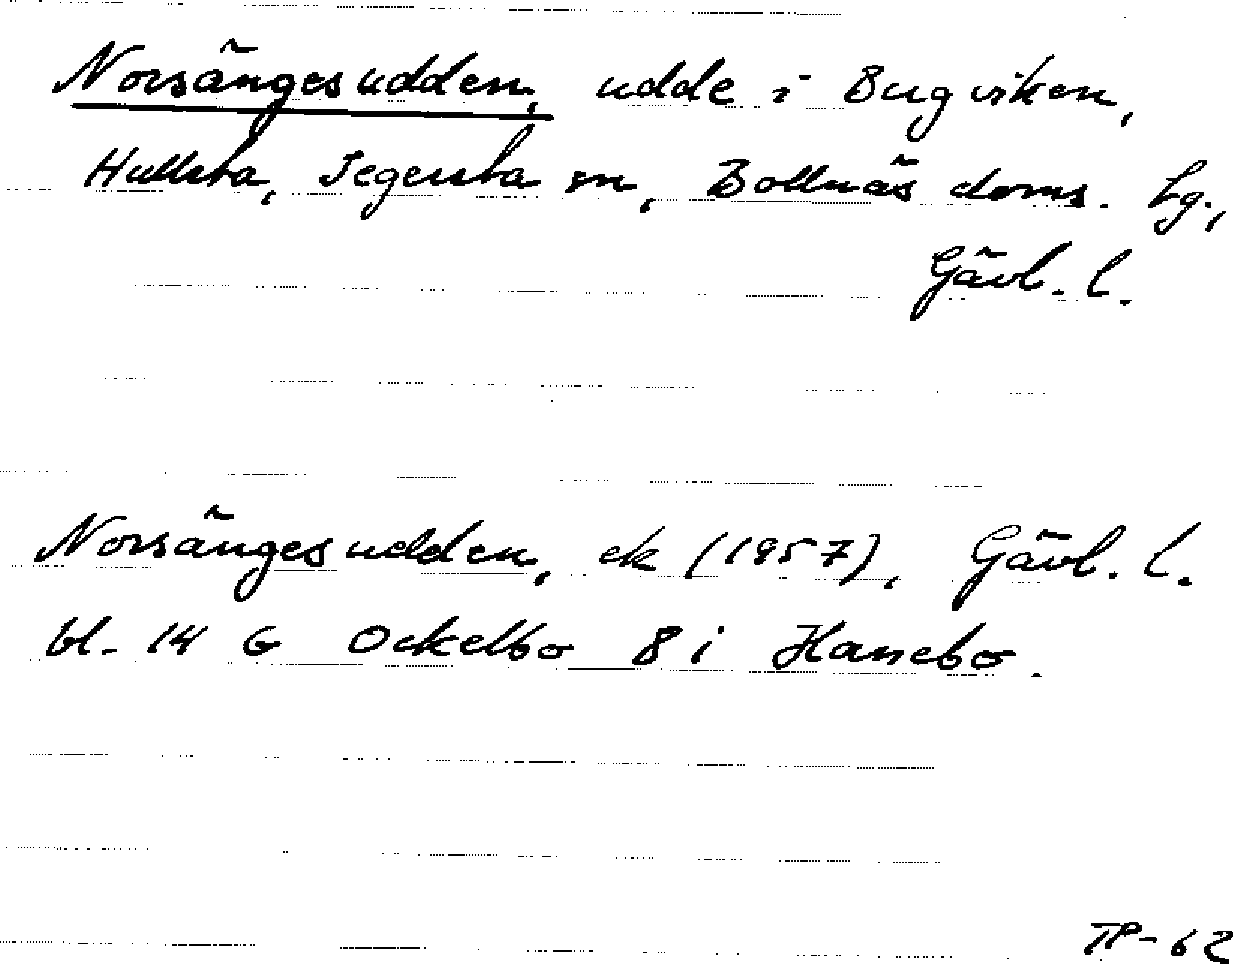 Norsängesudden, udde i Bugviken,
Hullsta, Segersta sn, Bollnäs doms. hg.,
Gävl. l.
Norsängesudden, ek (1957), Gävl. l.
bl. 14 G Ockelbo 8 i Hanebo.
TP-62